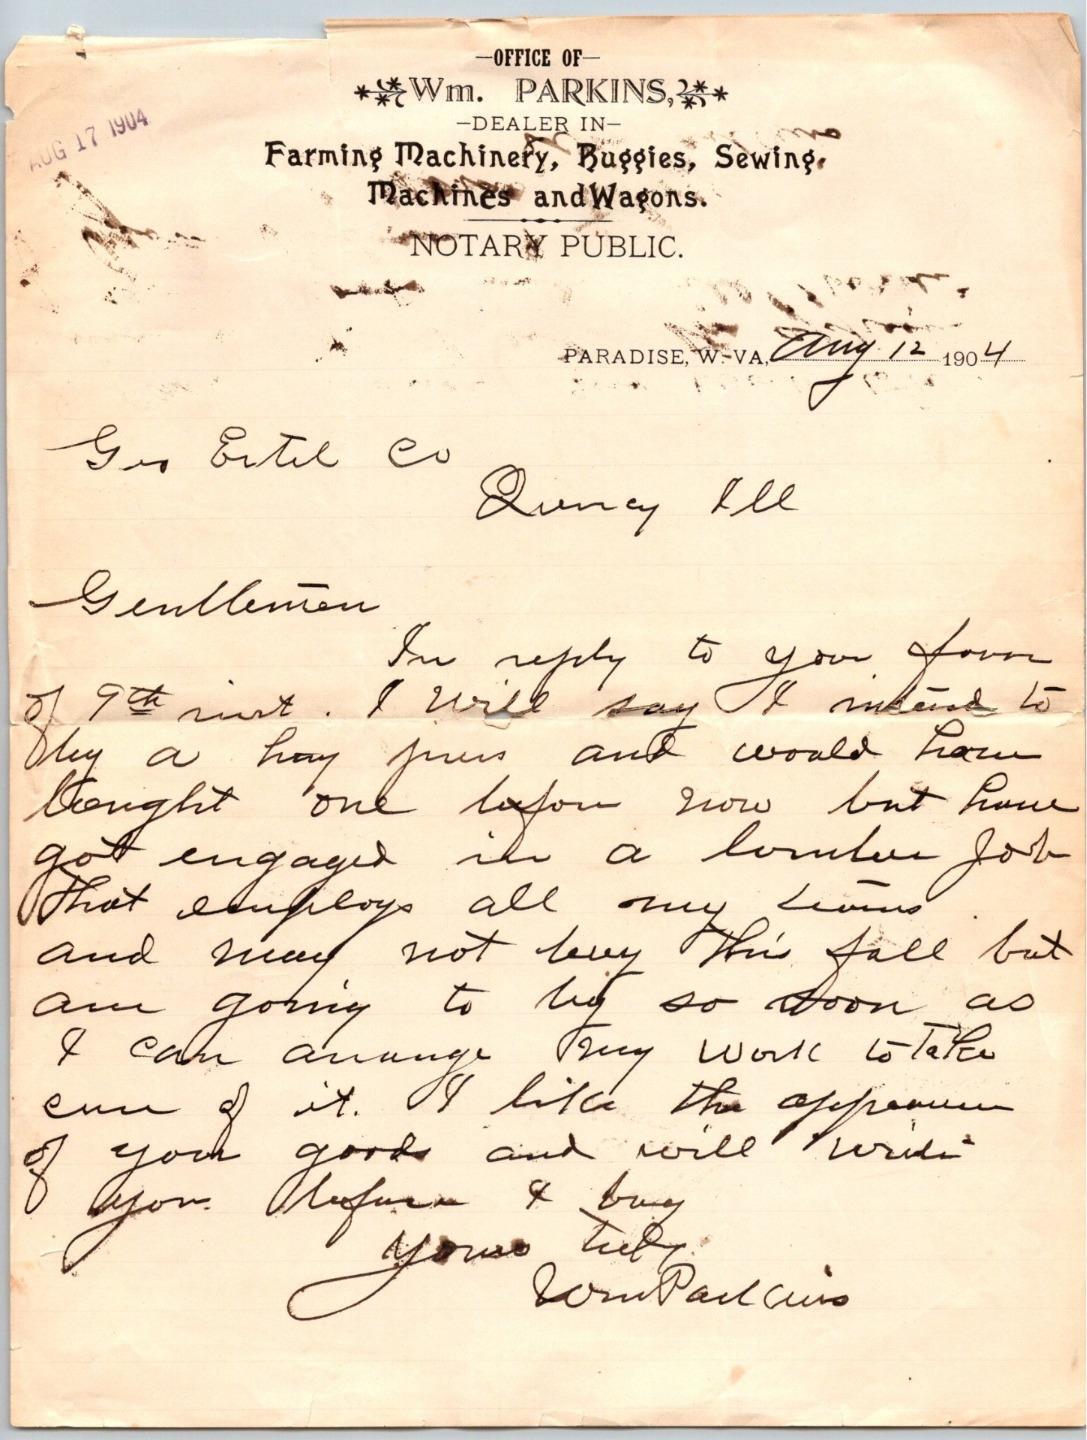 —OFFICE OF—
Wm. PARKINS,
—DEALER IN—
Farming Machinery, Buggies, Sewing
Machines and Wagons.
NOTARY PUBLIC.
AUG 17 1904
PARADISE, W. VA, Aug 12 1904
Geo Ertel Co
Quincy Ill
Gentlemen
In reply to your favor
of 9th inst. I will say I intend to
by a hay press and would have
bought one before now but have
got engaged in a lumber Job
that employs all my teams
and may not buy this fall but
am going to by so soon as
I can arrange my work to take
care of it. I like the appearance
of your goods and will write
you before I buy
Yours truly
Wm Parkins